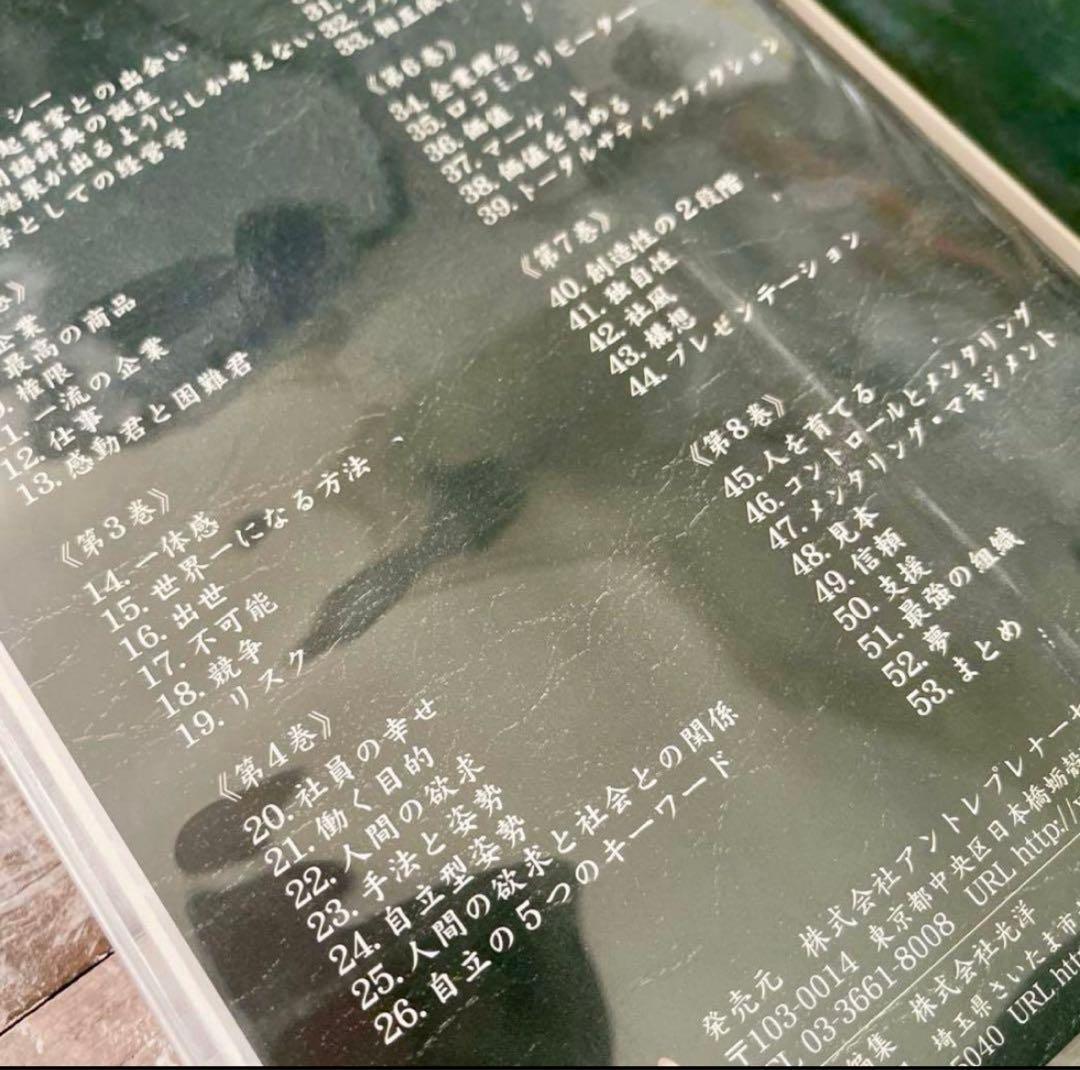 シー
起業家との出会い
用語辞典の誕生
結果が出るようにしか考えない
学としての経営学
企業
最高の商品
権限
一流の企業
12. 仕事
13. 感動君と困難君
《第3巻》
14. 一体感
15. 世界一になる方法
16. 出世
17. 不可能
18. 競争
19. リスク
《第4巻》
20. 社員の幸せ
21. 働く目的
22. 人間の欲求
23. 手法と姿勢
24. 自立型姿勢
25. 人間の欲求と社会との関係
26. 自立の5つのキーワード
31.
32.
33.
《第6巻》
34. 企業理化
35. 口コミとリピーター
36. 価値
37. マーケット
38. 価値を高める
39. トータルサティスファクション
《第7巻》
40. 創造性の2段階
41. 独自性
42. 社風
43. 構想
44. プレゼンテーション
《第8巻》
45. 人を育てる
46. コントロールとメンタリング
47. メンタリング・マネジメント
48. 見本
49. 信頼
50. 支援
51. 最強の組織
52. 夢
53. まとめ
発売元 株式会社アントレプレナーセ
〒103-0014 東京都中央区日本橋蛎殻
03-3661-8008 URL http://
編集 株式会社光洋
埼玉県さいたま市
5040 URL htt